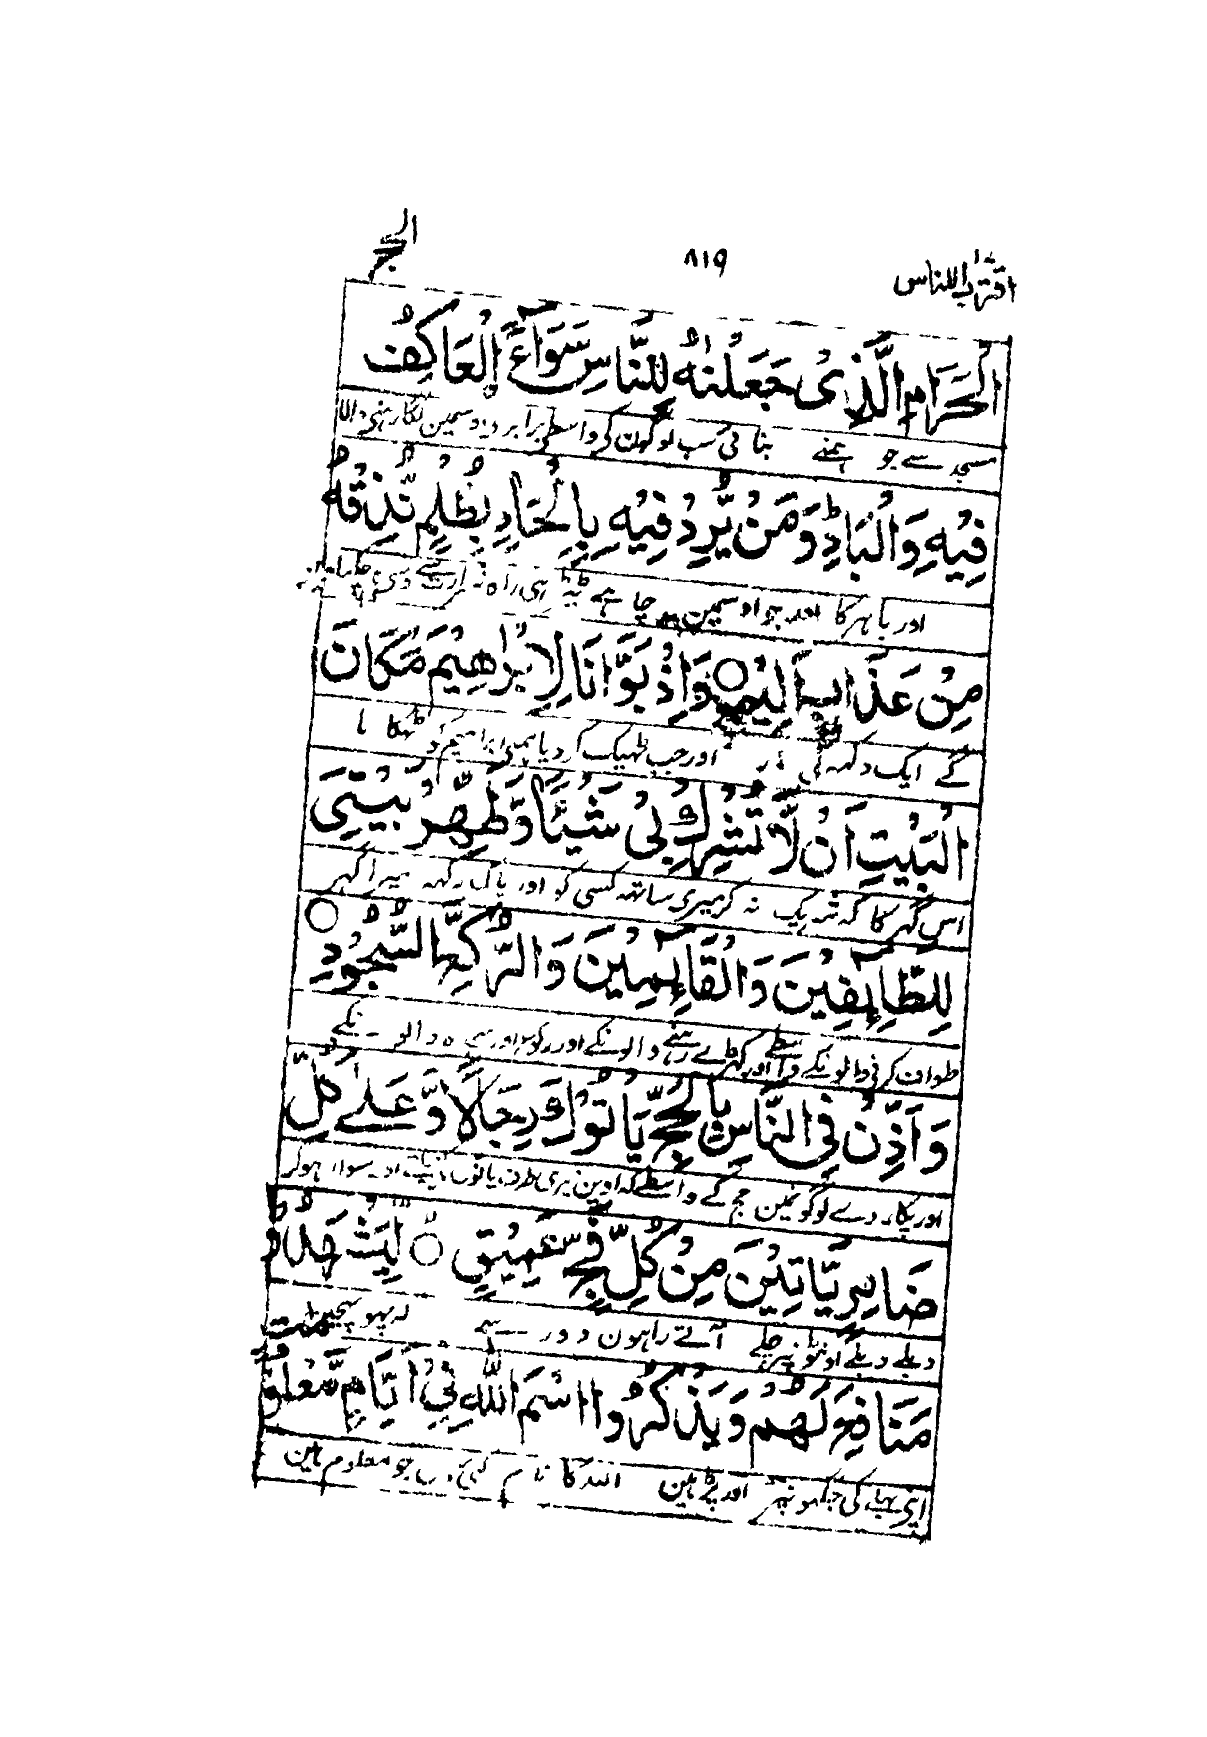 اقترب للناس ۱۷ ۸۱۹ الحج
الْحَرَامِ الَّذِیْ جَعَلْنٰهُ لِلنَّاسِ سَوَآءَ ِ۟الْعَاكِفُ
مسجد سے جو ہمنے بنائی سب لوگون کی واسطے برابر ہے اوسمین لگا رہنی والا
فِیْهِ وَالْبَادِ ؕ وَمَنْ یُّرِدْ فِیْهِ بِاِلْحَادٍۭ بِظُلْمٍ نُّذِقْهُ
اور باہر کا اور جو اوسمین چاہے ٹیڑہی راہ شرارت سے
مِنْ عَذَابٍ اَلِیْمٍ ۝ وَاِذْ بَوَّاْنَا لِاِبْرٰهِیْمَ مَكَانَ
گے ایک دکہہ کی مار اور جب ٹھیک کر دیا ہمنی ابراہیم کو ٹھکانا
الْبَیْتِ اَنْ لَّا تُشْرِكْ بِیْ شَیْـًٔا وَّطَهِّرْ بَیْتِیَ
اس گہر کا کہ شریک نہ کر میری ساتہہ کسی کو اور پاک رکہہ میرا گہر
لِلطَّآئِفِیْنَ وَالْقَآئِمِیْنَ وَالرُّكَّعِ السُّجُوْدِ ۝
طواف کرنی والونکے واسطے اور کھڑے رہنے والونکے اور رکوع اور سجدہ والونکے
وَاَذِّنْ فِی النَّاسِ بِالْحَجِّ یَاْتُوْكَ رِجَالًا وَّعَلٰی كُلِّ
اور پکار دے لوگونمین حج کے واسطے کہ آوین تیری طرف پانوں چلتے اور سوار ہوکر
ضَامِرٍ یَّاْتِیْنَ مِنْ كُلِّ فَجٍّ عَمِیْقٍ ۝ لِّیَشْهَدُوْا
دبلے دبلے اونٹونپر چلے آتے راہون دور سے کہ پہونچین
مَنَافِعَ لَهُمْ وَیَذْكُرُوا اسْمَ اللّٰهِ فِیْۤ اَیَّامٍ مَّعْلُوْمٰتٍ
اپنی بہلے کی جگہونپر اور پڑہین اللہ کا نام کئی دن جو معلوم ہین